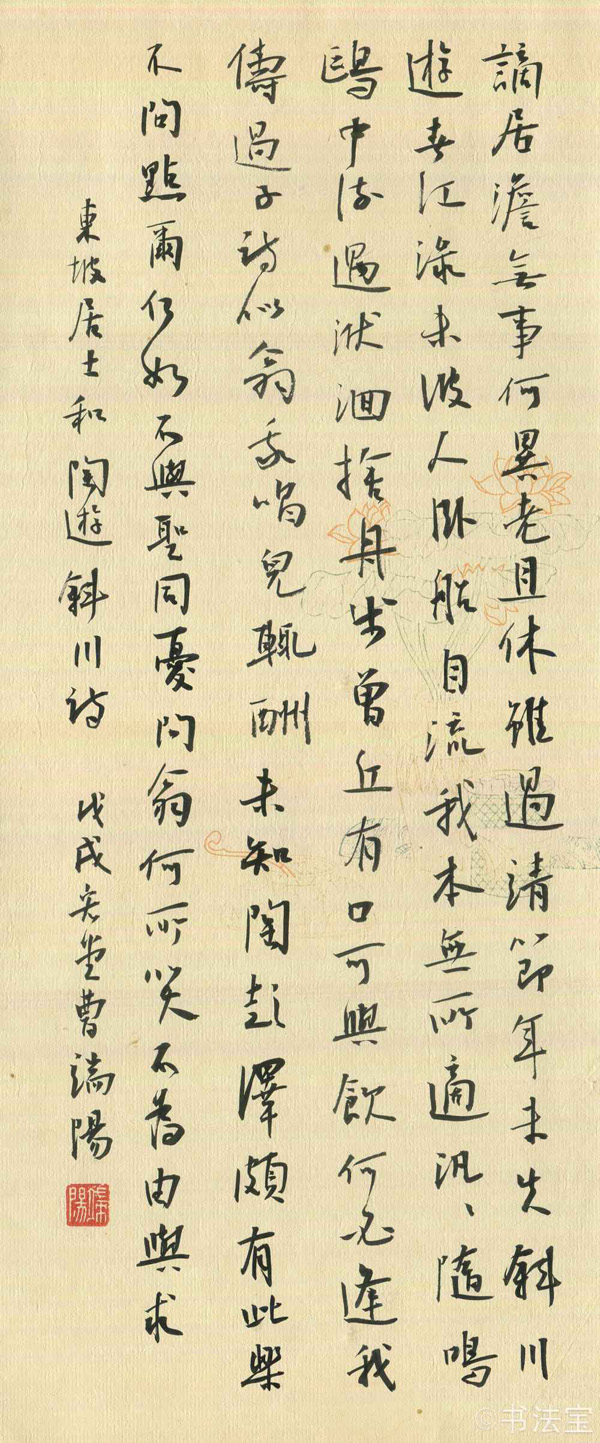 謫居澹無事何異老且休雖過靖節年未失斜川
遊春江淥未波人卧船自流我本無所適汎〻隨鳴
鷗中流遇洑洄捨舟步曾丘有口可與飲何必逢我
儔過子詩似翁我唱兒輒酬未知陶彭澤頗有此樂
不問點爾何如不與聖同憂問翁何所笑不為由與求
東坡居士和陶遊斜川詩 戊戌 堂曹端陽
端陽
©书法宝